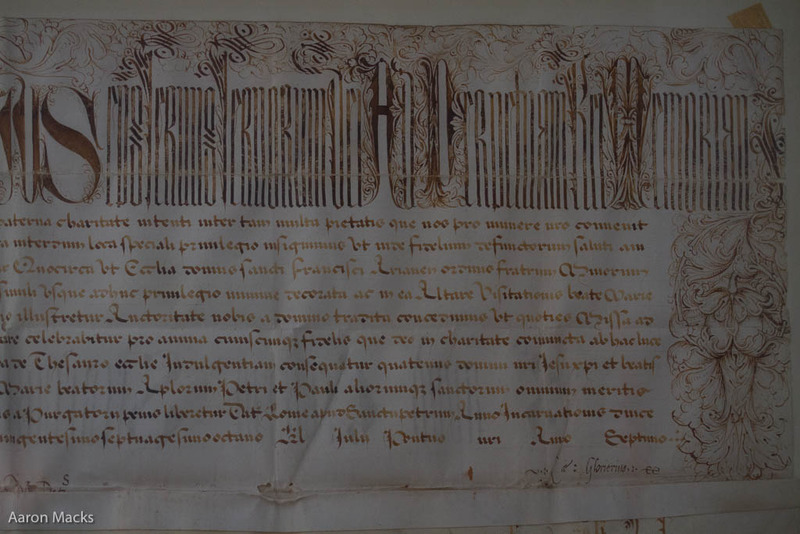 us servus servorum Dei Ad Perpetuam Rei Memoriam
paterna charitate intenti inter tam multa pietatis que nos pro munere nro conuenit
interdum loca speciali priuilegio insignimus Vt inde fidelium defunctorum saluti
Quocirca Vt Ecclia domus sancti Francisci ordinis fratrum Minorum
simili Vsque adhuc priuilegio minime decorata ac in ea Altare Visitationis beate Marie
illustretur Auctoritate nobis a domino tradita concedimus Vt quoties Missa ad
celebrabitur pro anima cuiuscunq fidelis que deo in charitate coniuncta ab hac luce
de Thesauro ecclie Indulgentiam consequatur quatenus domini nri Jesu xpi et beatis
Marie beatorum Aplorum Petri et Pauli aliorumq sanctorum omnium meritis
a Purgatorii penis liberetur Dat Rome apud Sanctu petrum Anno Incarnationis dnice
ingentesimo septuagesimo octauo Kl Julii Pontus nri Anno Septimo
Cae: Glorierius
Aaron Macks